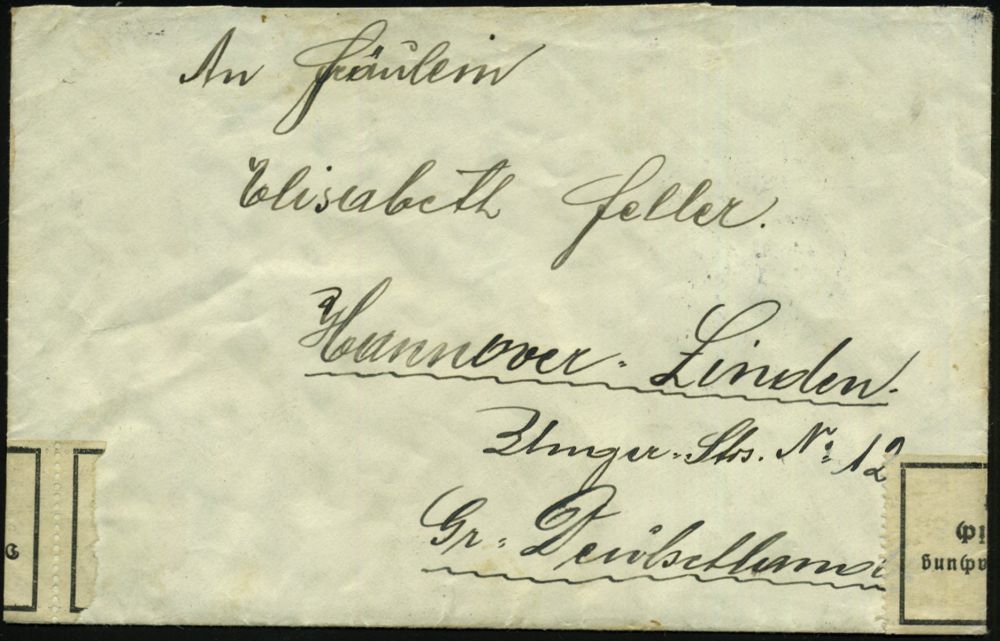 An Fräulein
Elisabeth Feller.
Hannover-Linden.
Str. No 12
Gr. Deutschland